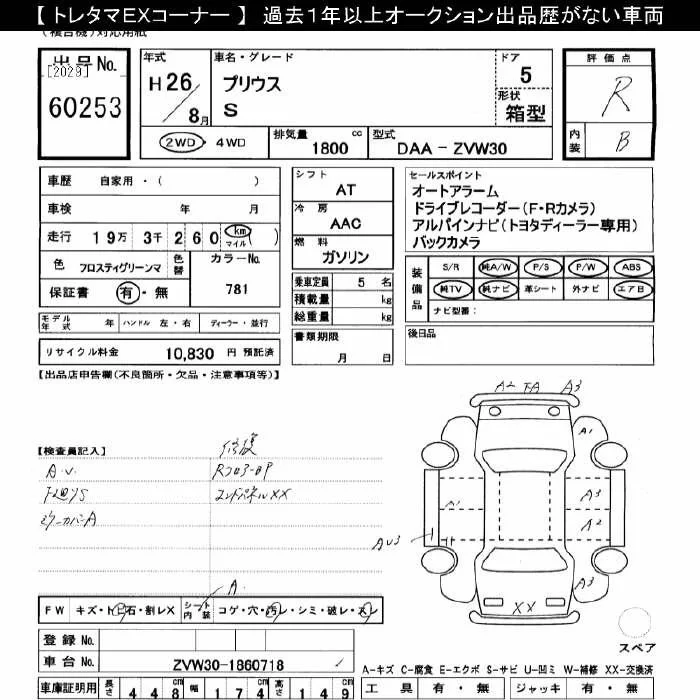 【トレタマEXコーナー】 過去1年以上オークション出品歴がない車両
出品No.
[2029]
60253
年式
H26/8月
車名・グレード
プリウス
S
ドア
5
形状
箱型
評価点
R
内装
B
2WD・4WD
排気量 cc
1800
型式
DAA－ZVW30
車歴 自家用・( )
車検 年 月
走行 19万 3千 260 km マイル ( )
色 フロスティグリーンマ
色替
カラーNo.
781
保証書 有・無
モデル年式 年 ハンドル 左・右 ディーラー・並行
リサイクル料金 10,830 円 預託済
シフト
AT
冷房
AAC
燃料
ガソリン
乗車定員 5 名
積載量 kg
総重量 kg
書類期限
月 日
セールスポイント
オートアラーム
ドライブレコーダー(F・Rカメラ)
アルパインナビ(トヨタディーラー専用)
バックカメラ
装備品
S/R 純A/W P/S P/W ABS
純TV 純ナビ 革シート 外ナビ エアB
ナビ型番：
後日品
【出品店申告欄(不良箇所・欠品・注意事項等)】
【検査員記入】
修復
A.V.
エンドパネルXX
ミラーカバーA
A2
A3
A1
A1
A3
A2
A3
XX
A.
FW キズ・トビ石・割レX
シート内装
コゲ・穴・汚レ・シミ・破レ・スレ
登録 No.
車台 No. ZVW30-1860718
車庫証明用 長さ 448cm 幅 174cm 高さ 149cm
スペア
A-キズ C-腐食 E-エクボ S-サビ U-凹ミ W-補修 XX-交換済
工具 有・無 ジャッキ 有・無